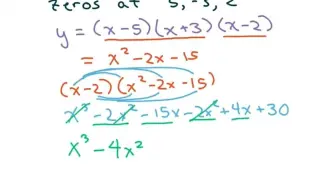 zeros at 5, -3, 2
y = (x-5)(x+3)(x-2)
= x² - 2x - 15
(x-2)(x²-2x-15)
x³ - 2x² - 15x - 2x² + 4x + 30
x³ - 4x²